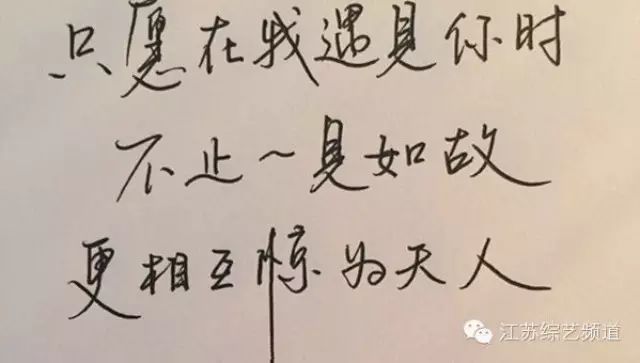 只愿在我遇见你时
不止一见如故
更相互惊为天人
江苏综艺频道